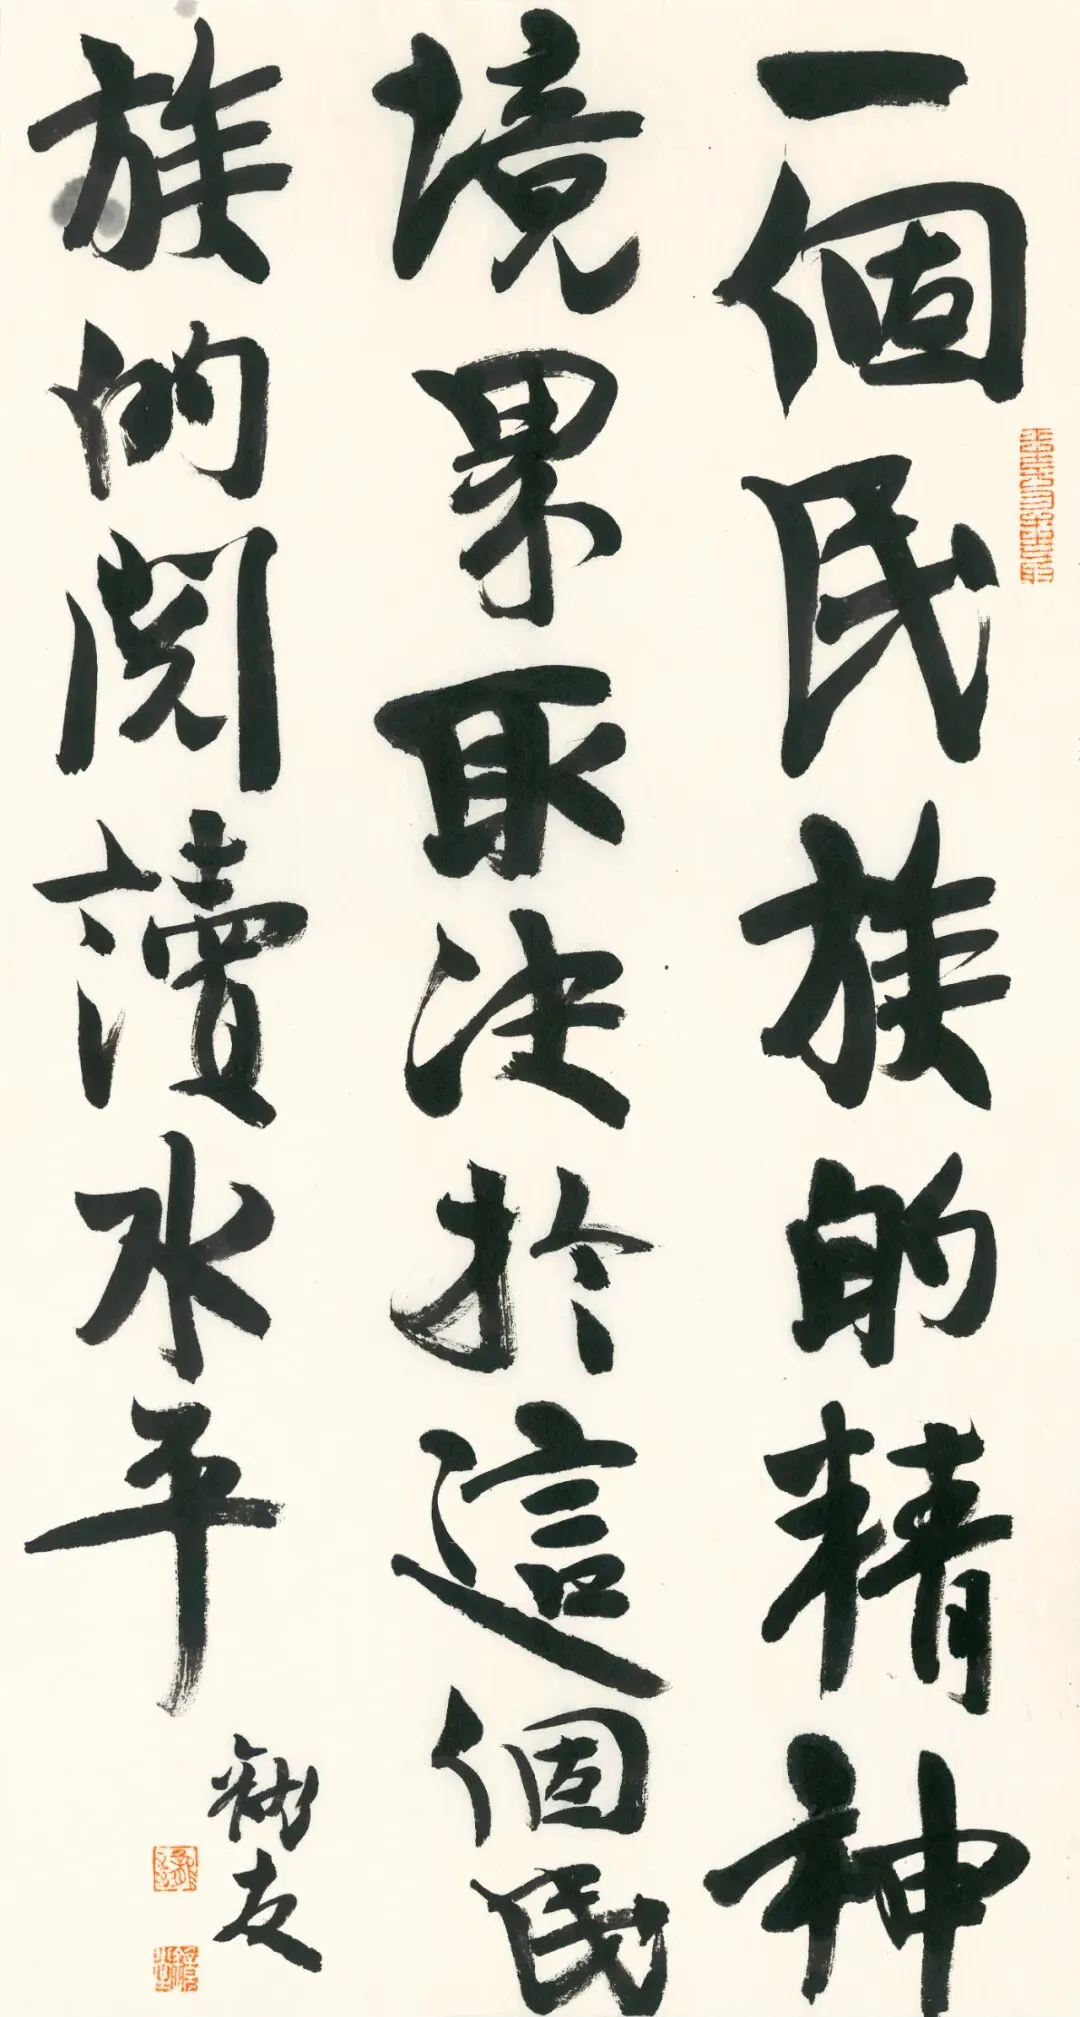 一個民族的精神
境界取決於這個民
族的閱讀水平